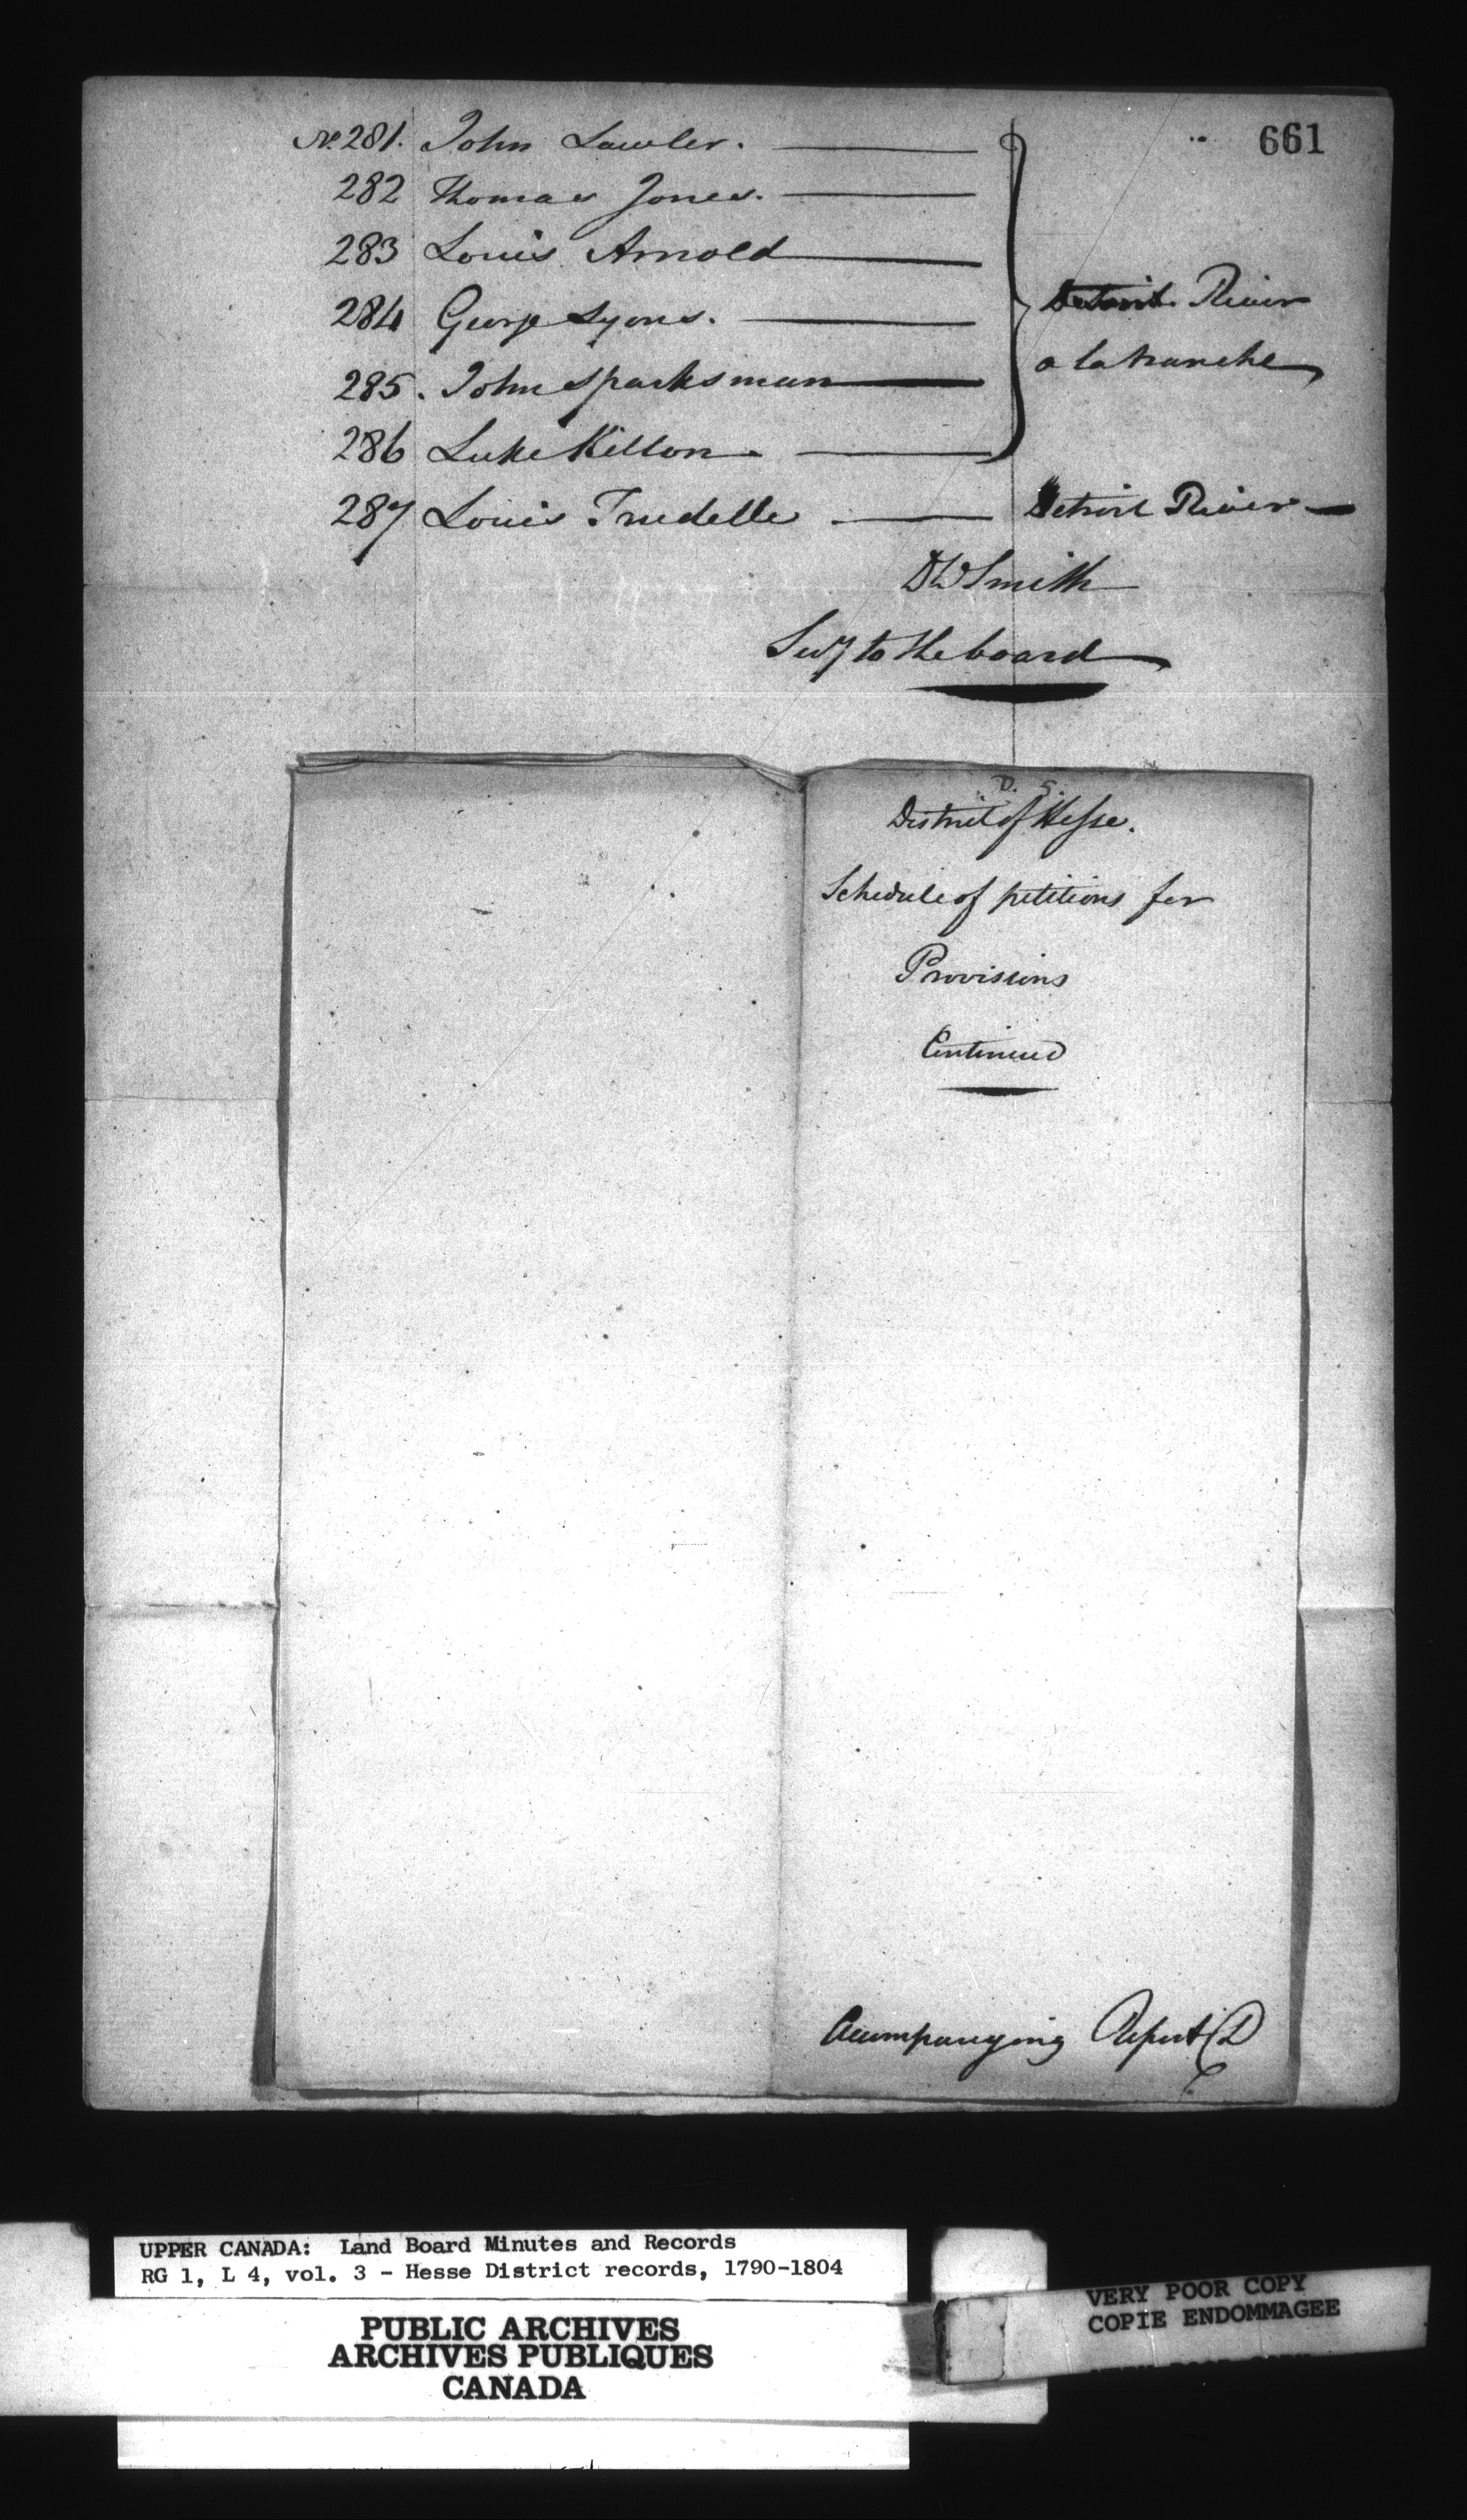 661
No. 281. John Lawler.
282 Thomas Jones.
283 Louis Arnold
284 George Lyons.
285. John Sparksman
286 Luke Killon
Detroit River
a la tranche
287 Louis Trudelle Detroit River
DWSmith
Secy to the board
D. G.
District of Hesse.
Schedule of petitions for
Provisions
Continued
Accompanying Report D
UPPER CANADA: Land Board Minutes and Records
RG 1, L 4, vol. 3 - Hesse District records, 1790-1804
PUBLIC ARCHIVES
ARCHIVES PUBLIQUES
CANADA
VERY POOR COPY
COPIE ENDOMMAGEE